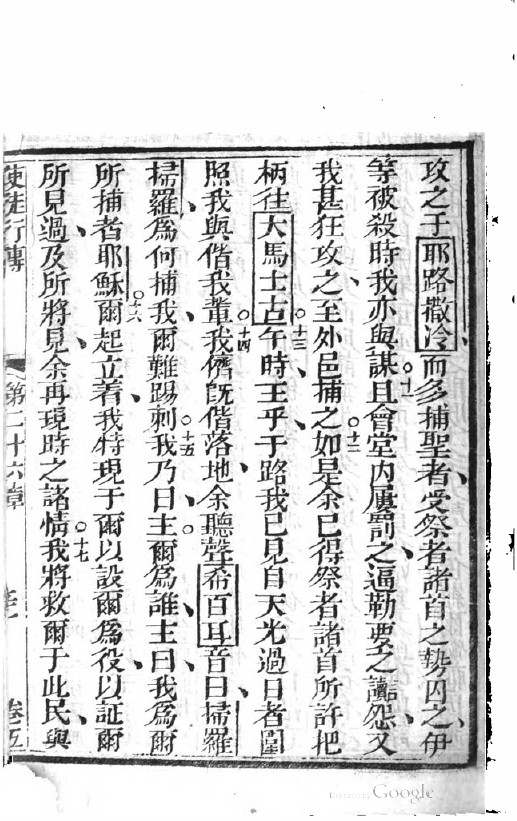 攻之于耶路撒冷而多捕聖者受祭者諸首之勢囚之伊
等被殺時我亦與謀○十一且會堂内屢罰之逼勒要之讟怨又
我甚狂攻之至外邑捕之○十二如是余已得祭者諸首所許把
柄往大馬士古○十三午時王乎于路我已見自天光過日者圍
照我與偕我輩○十四我儕旣偕落地余聽聲希百耳音曰掃羅
掃羅爲何捕我爾難踢刺○十五我乃曰主爾爲誰主曰我爲爾
所捕者耶穌○十六爾起立着我特現于爾以設爾爲役以証爾
所見過及所將見余再現時之諸情○十七我將救爾于此民與
使徒行傳 第二十六章 卷五
Digitized by Google